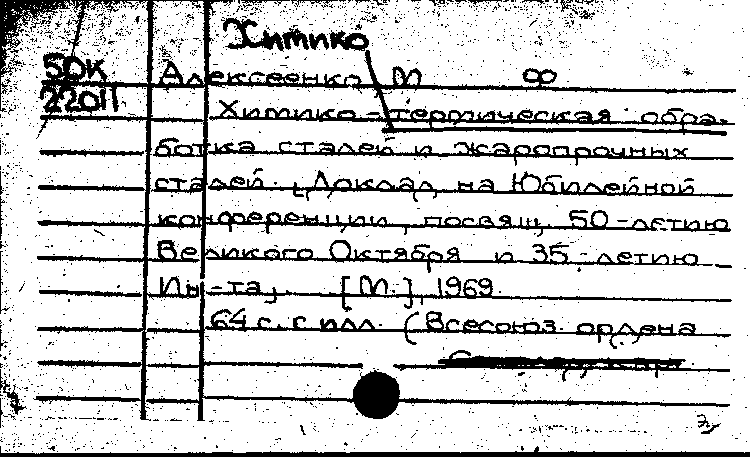 Химико
50К
22011
Алексеенко М Ф
Химико-термическая обра-
ботка сталей и жаропрочных
сталей. (Доклад на Юбилейной
конференции, посвящ. 50-летию
Великого Октября и 35-летию
Ин-та). [М.], 1969.
64 с. с илл. (Всесоюз. ордена